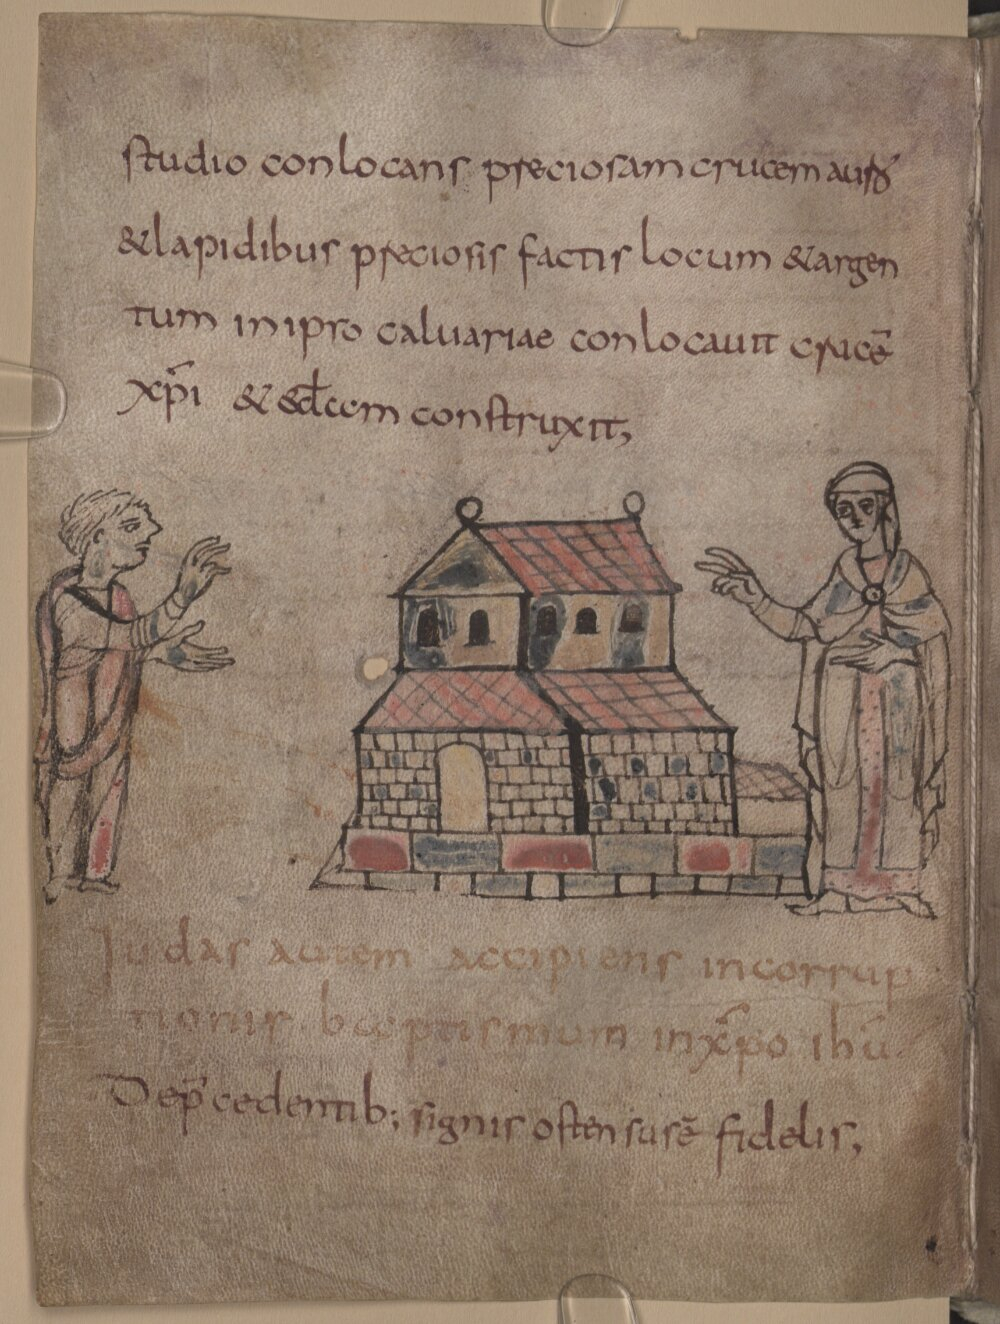 studio conlocans preciosam crucem aur&
&lapidibus preciosis factis locum &argen
tum inipro caluariae conlocauit crucē
xp̄i & &cłem construxit;
Iudas autem accipiens incorrup
tionis baeptismum inxp̄o ihū.
Dep̄cedentib; signis ostensusē fidelis;